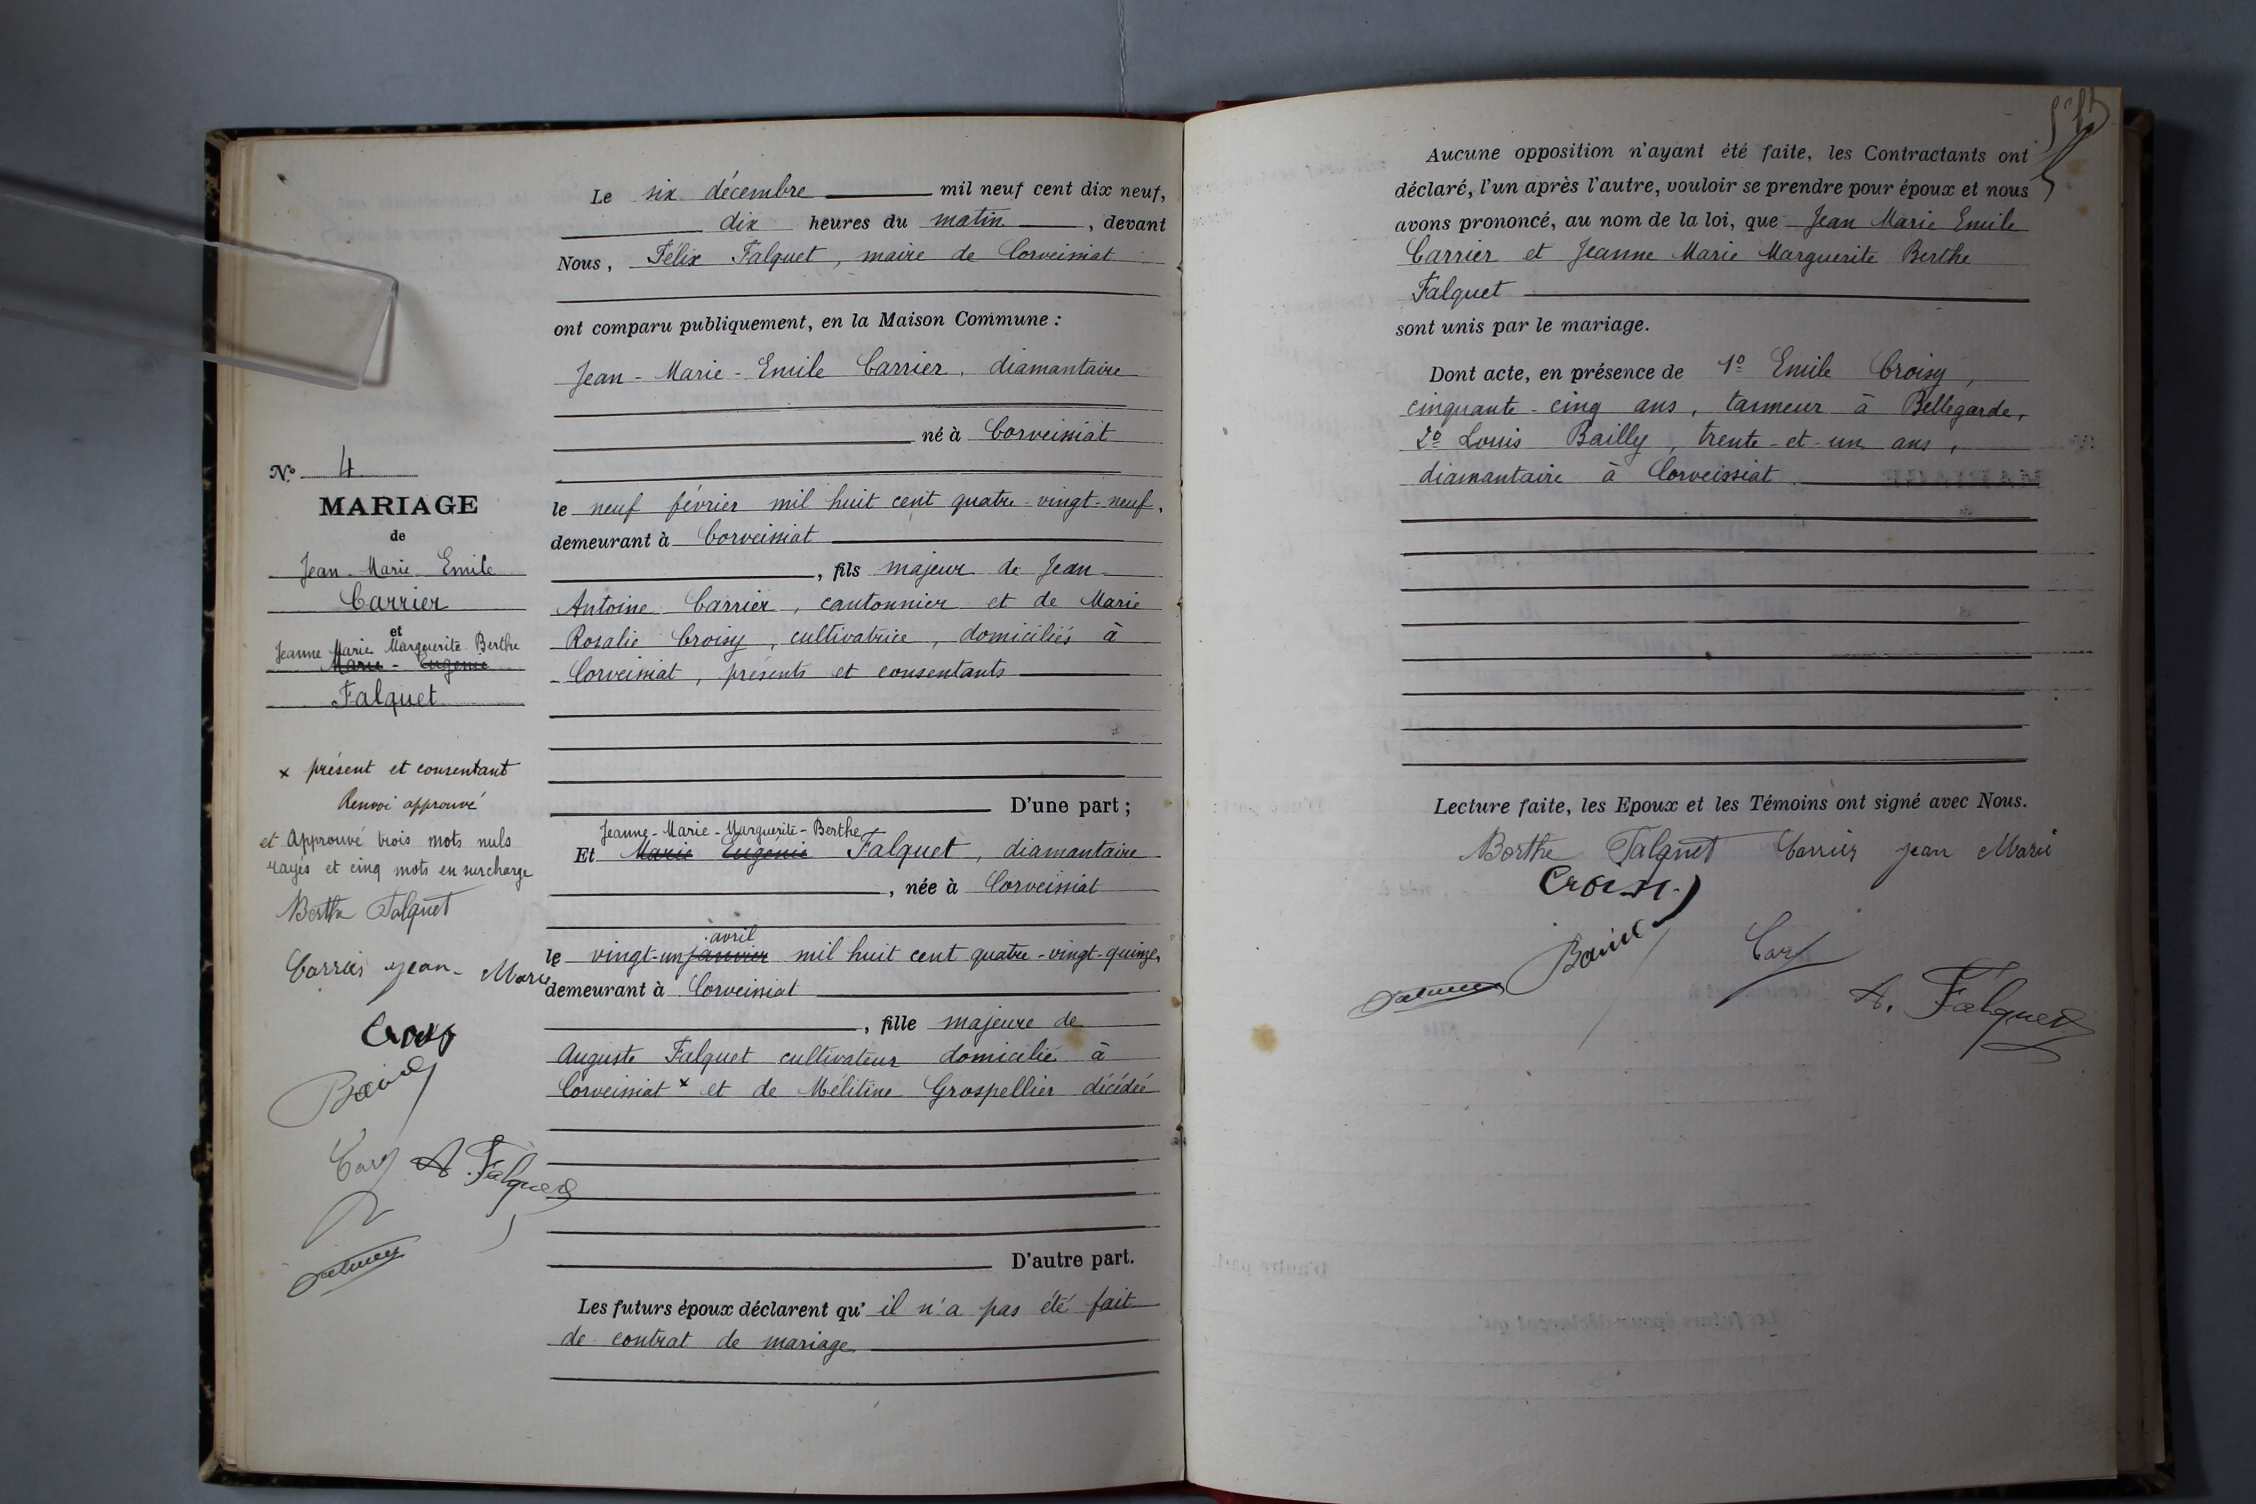 N° 4
MARIAGE
de
Jean-Marie-Emile
Carrier
et
Jeanne Marie Marguerite Berthe
Marie-Eugénie
Falquet
x présent et consentant
Renvoi approuvé
et Approuvé trois mots nuls
rayés et cinq mots en surcharge
Berthe Falquet
Carrier Jean-Marie
Croisy
A. Falquet
Le six décembre mil neuf cent dix neuf,
dix heures du matin, devant
Nous, Félix Falquet, maire de Corveissiat
ont comparu publiquement, en la Maison Commune :
Jean-Marie-Emile Carrier, diamantaire
né à Corveissiat
le neuf février mil huit cent quatre-vingt-neuf,
demeurant à Corveissiat
, fils majeur de Jean
Antoine Carrier, cantonnier et de Marie
Rosalie Croisy, cultivatrice, domiciliés à
Corveissiat, présents et consentants
D'une part ;
Jeanne-Marie-Marguerite-Berthe
Et Marie Eugénie Falquet, diamantaire
, née à Corveissiat
avril
le vingt-un janvier mil huit cent quatre-vingt-quinze,
demeurant à Corveissiat
, fille majeure de
Auguste Falquet cultivateur domicilié à
Corveissiat x et de Mélitine Grospellier décédée
D'autre part.
Les futurs époux déclarent qu' il n'a pas été fait
de contrat de mariage
Aucune opposition n'ayant été faite, les Contractants ont
déclaré, l'un après l'autre, vouloir se prendre pour époux et nous
avons prononcé, au nom de la loi, que Jean Marie Emile
Carrier et Jeanne Marie Marguerite Berthe
Falquet
sont unis par le mariage.
Dont acte, en présence de 1° Emile Croisy,
cinquante-cinq ans, tanneur à Bellegarde,
2° Louis Bailly, trente-et-un ans,
diamantaire à Corveissiat.
Lecture faite, les Epoux et les Témoins ont signé avec Nous.
Berthe Falquet Carrier Jean Marie
Croisy
A. Falquet